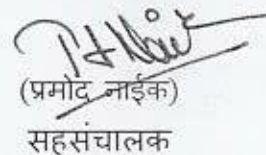 (प्रमोद नाईक)
सहसंचालक